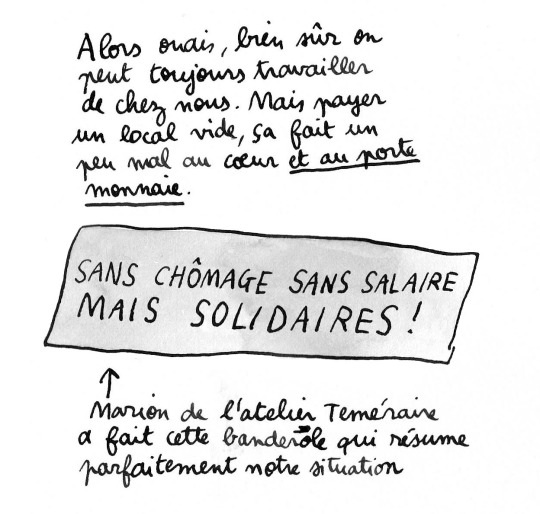 Alors ouais, bien sûr on
peut toujours travailler
de chez nous. Mais payer
un local vide, ça fait un
peu mal au cœur et au porte
monnaie.
SANS CHÔMAGE SANS SALAIRE
MAIS SOLIDAIRES !
↑
Marion de l'atelier Téméraire
a fait cette banderole qui résume
parfaitement notre situation